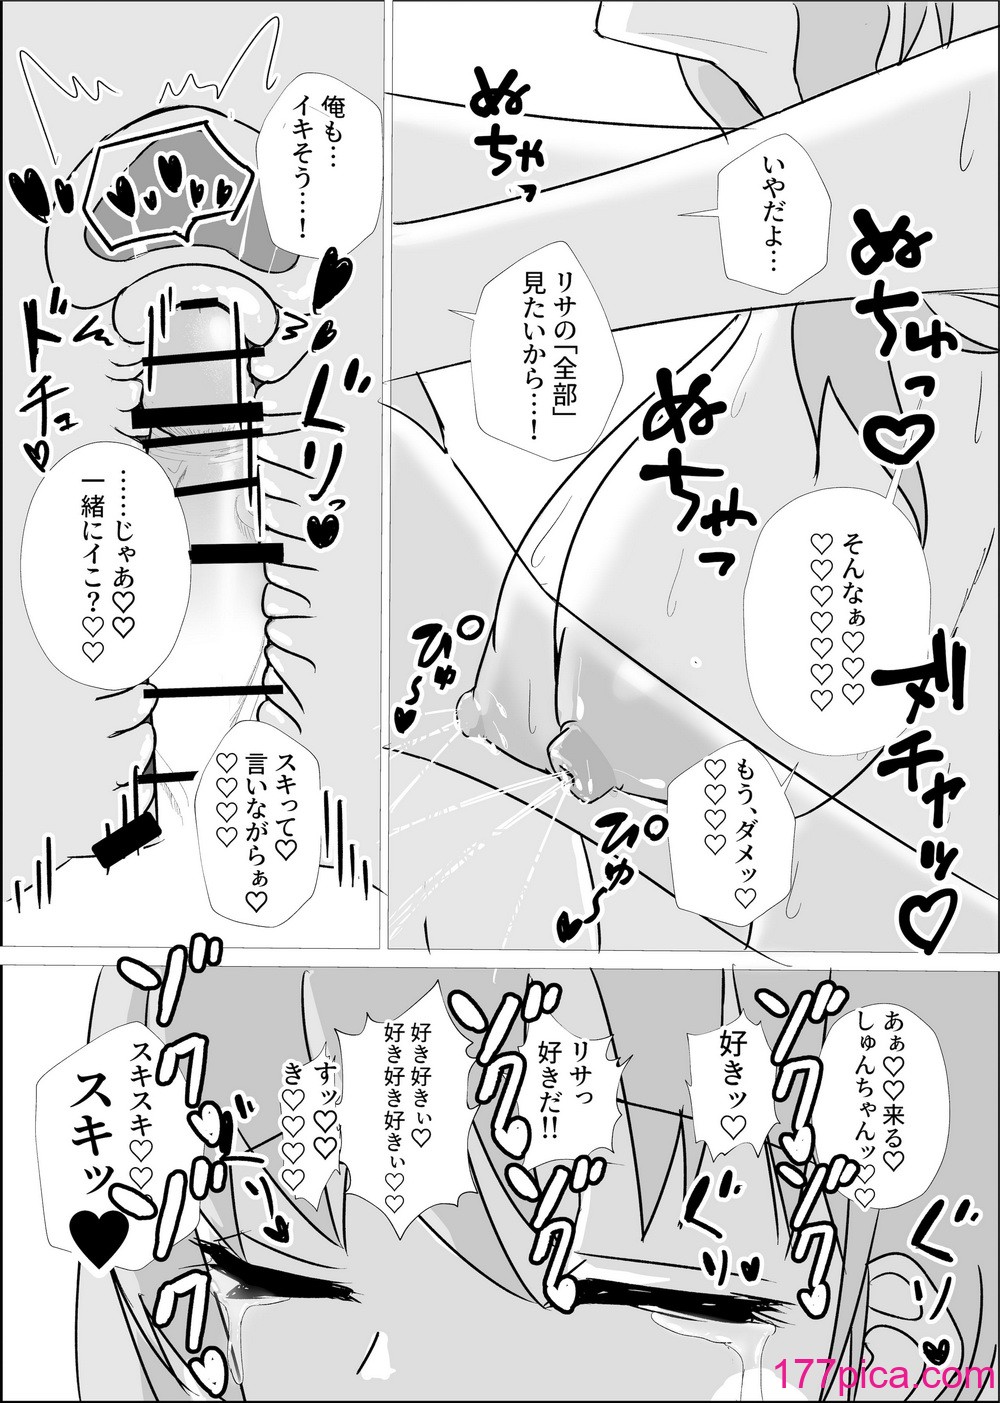 ぬちゃっ
いやだよ…
ぬちゅっ♡
リサの「全部」
見たいから…‥!
ぬちゃっ
そんなぁ♡♡♡
♡♡♡♡♡♡♡
ズメチャッ♡
もう、ダメッ♡
♡♡♡♡
ぴゅ～♥
ぴゅ～♥
俺も…
イキそう…‥!
ドチュ♡
ぐリっ♥
……じゃあ♡♡
一緒にイこ?♡♡
スキって♡
言いながらぁ♡
♡♡♡♡
あぁ♡♡来る♡
しゅんちゃんッ♡♡
ゾクゾク♡
好きッ♡
リサっ
好きだ!!
ゾクゾク♡
好き好きぃ♡
好き好き好きぃ♡♡
すッ♡♡♡
き♡♡♡♡♡
スキスキ♡♡
スキッ
♥
ゾクゾク♡
ぐり♥
ぐり♥
177pica.com